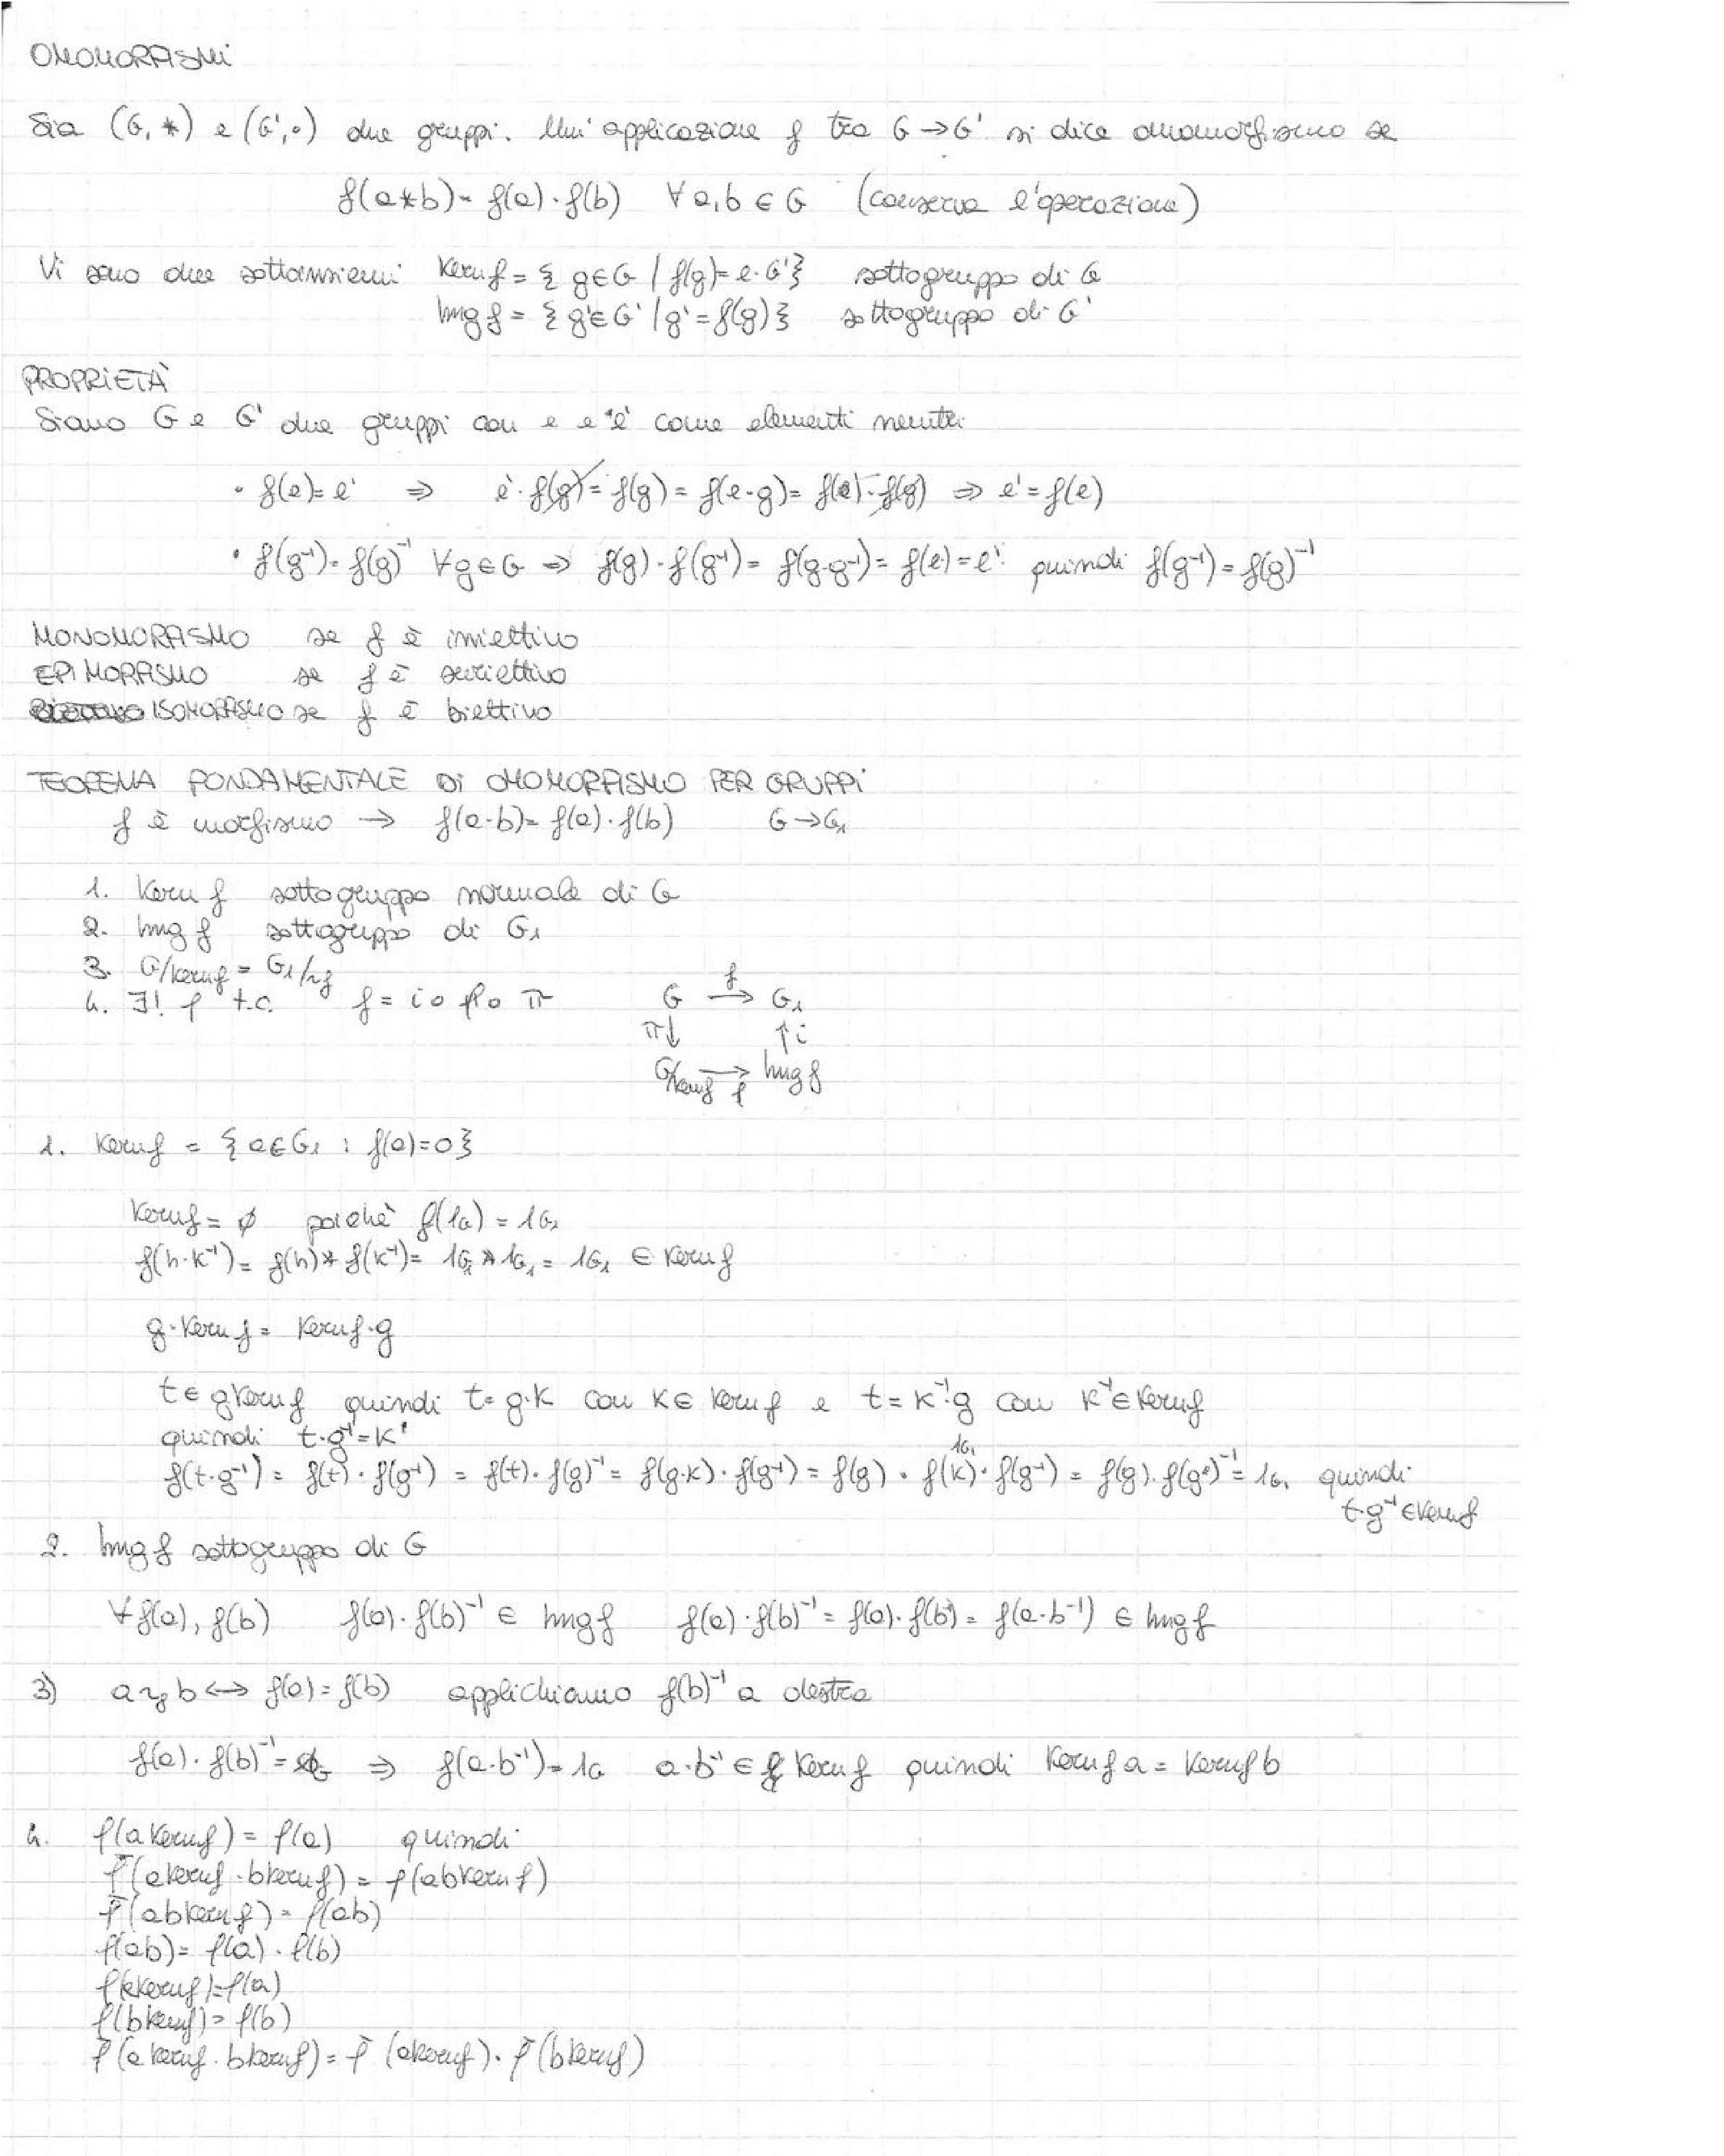 OMOMORFISMI
Sia (G, *) e (G', ∘) due gruppi. Un'applicazione f tra G → G' si dice omomorfismo se
f(a*b) = f(a) · f(b) ∀ a, b ∈ G (conserva l'operazione)
Vi sono due sottoinsiemi Kern f = { g ∈ G / f(g) = e·G' } sottogruppo di G
Img f = { g' ∈ G' / g' = f(g) } sottogruppo di G'
PROPRIETÀ
Siano G e G' due gruppi con e e "e' come elementi neutri
· f(e) = e' ⇒ e' · f(g) = f(g) = f(e·g) = f(e) · f(g) ⇒ e' = f(e)
· f(g⁻¹) = f(g)⁻¹ ∀ g ∈ G ⇒ f(g) · f(g⁻¹) = f(g·g⁻¹) = f(e) = e' quindi f(g⁻¹) = f(g)⁻¹
MONOMORFISMO se f è iniettivo
EPIMORFISMO se f è suriettivo
ISOMORFISMO se f è biettivo
TEOREMA FONDAMENTALE DI OMOMORFISMO PER GRUPPI
f è morfismo → f(a·b) = f(a) · f(b) G → G₁
1. Kern f sottogruppo normale di G
2. Img f sottogruppo di G₁
3. G/kern f = G₁/~f
4. ∃! f t.c. f = i ∘ f ∘ π
G →f G₁
π↓ ↑i
G/kern f →f Img f
1. Kern f = { a ∈ G₁ : f(a) = 0 }
Kern f = ∅ poichè f(1G) = 1G₁
f(h·k⁻¹) = f(h) * f(k⁻¹) = 1G₁ * 1G₁ = 1G₁ ∈ Kern f
g·Kern f = Kern f·g
t ∈ gKern f quindi t = g·k con k ∈ Kern f e t = k⁻¹·g con k⁻¹ ∈ Kern f
quindi t·g⁻¹ = k'
f(t·g⁻¹) = f(t) · f(g⁻¹) = f(t) · f(g)⁻¹ = f(g·k) · f(g⁻¹) = f(g) · f(k) · f(g⁻¹) = f(g) · f(g)⁻¹ = 1G₁ quindi
1G₁
t·g⁻¹ ∈ Kern f
2. Img f sottogruppo di G
∀ f(a), f(b) f(a) · f(b)⁻¹ ∈ Img f f(a) · f(b)⁻¹ = f(a) · f(b) = f(a·b⁻¹) ∈ Img f
3) a ~f b ↔ f(a) = f(b) applichiamo f(b)⁻¹ a destra
f(a) · f(b)⁻¹ = ⇒ f(a·b⁻¹) = 1G a·b⁻¹ ∈ Kern f quindi Kern f a = Kern f b
4. f(a Kern f) = f(a) quindi
f̄(a kern f · b kern f) = f(ab kern f)
f̄(ab kern f) = f(ab)
f(ab) = f(a) · f(b)
f(a kern f) = f(a)
f(b kern f) = f(b)
f̄(a kern f · b kern f) = f̄(a kern f) · f̄(b kern f)